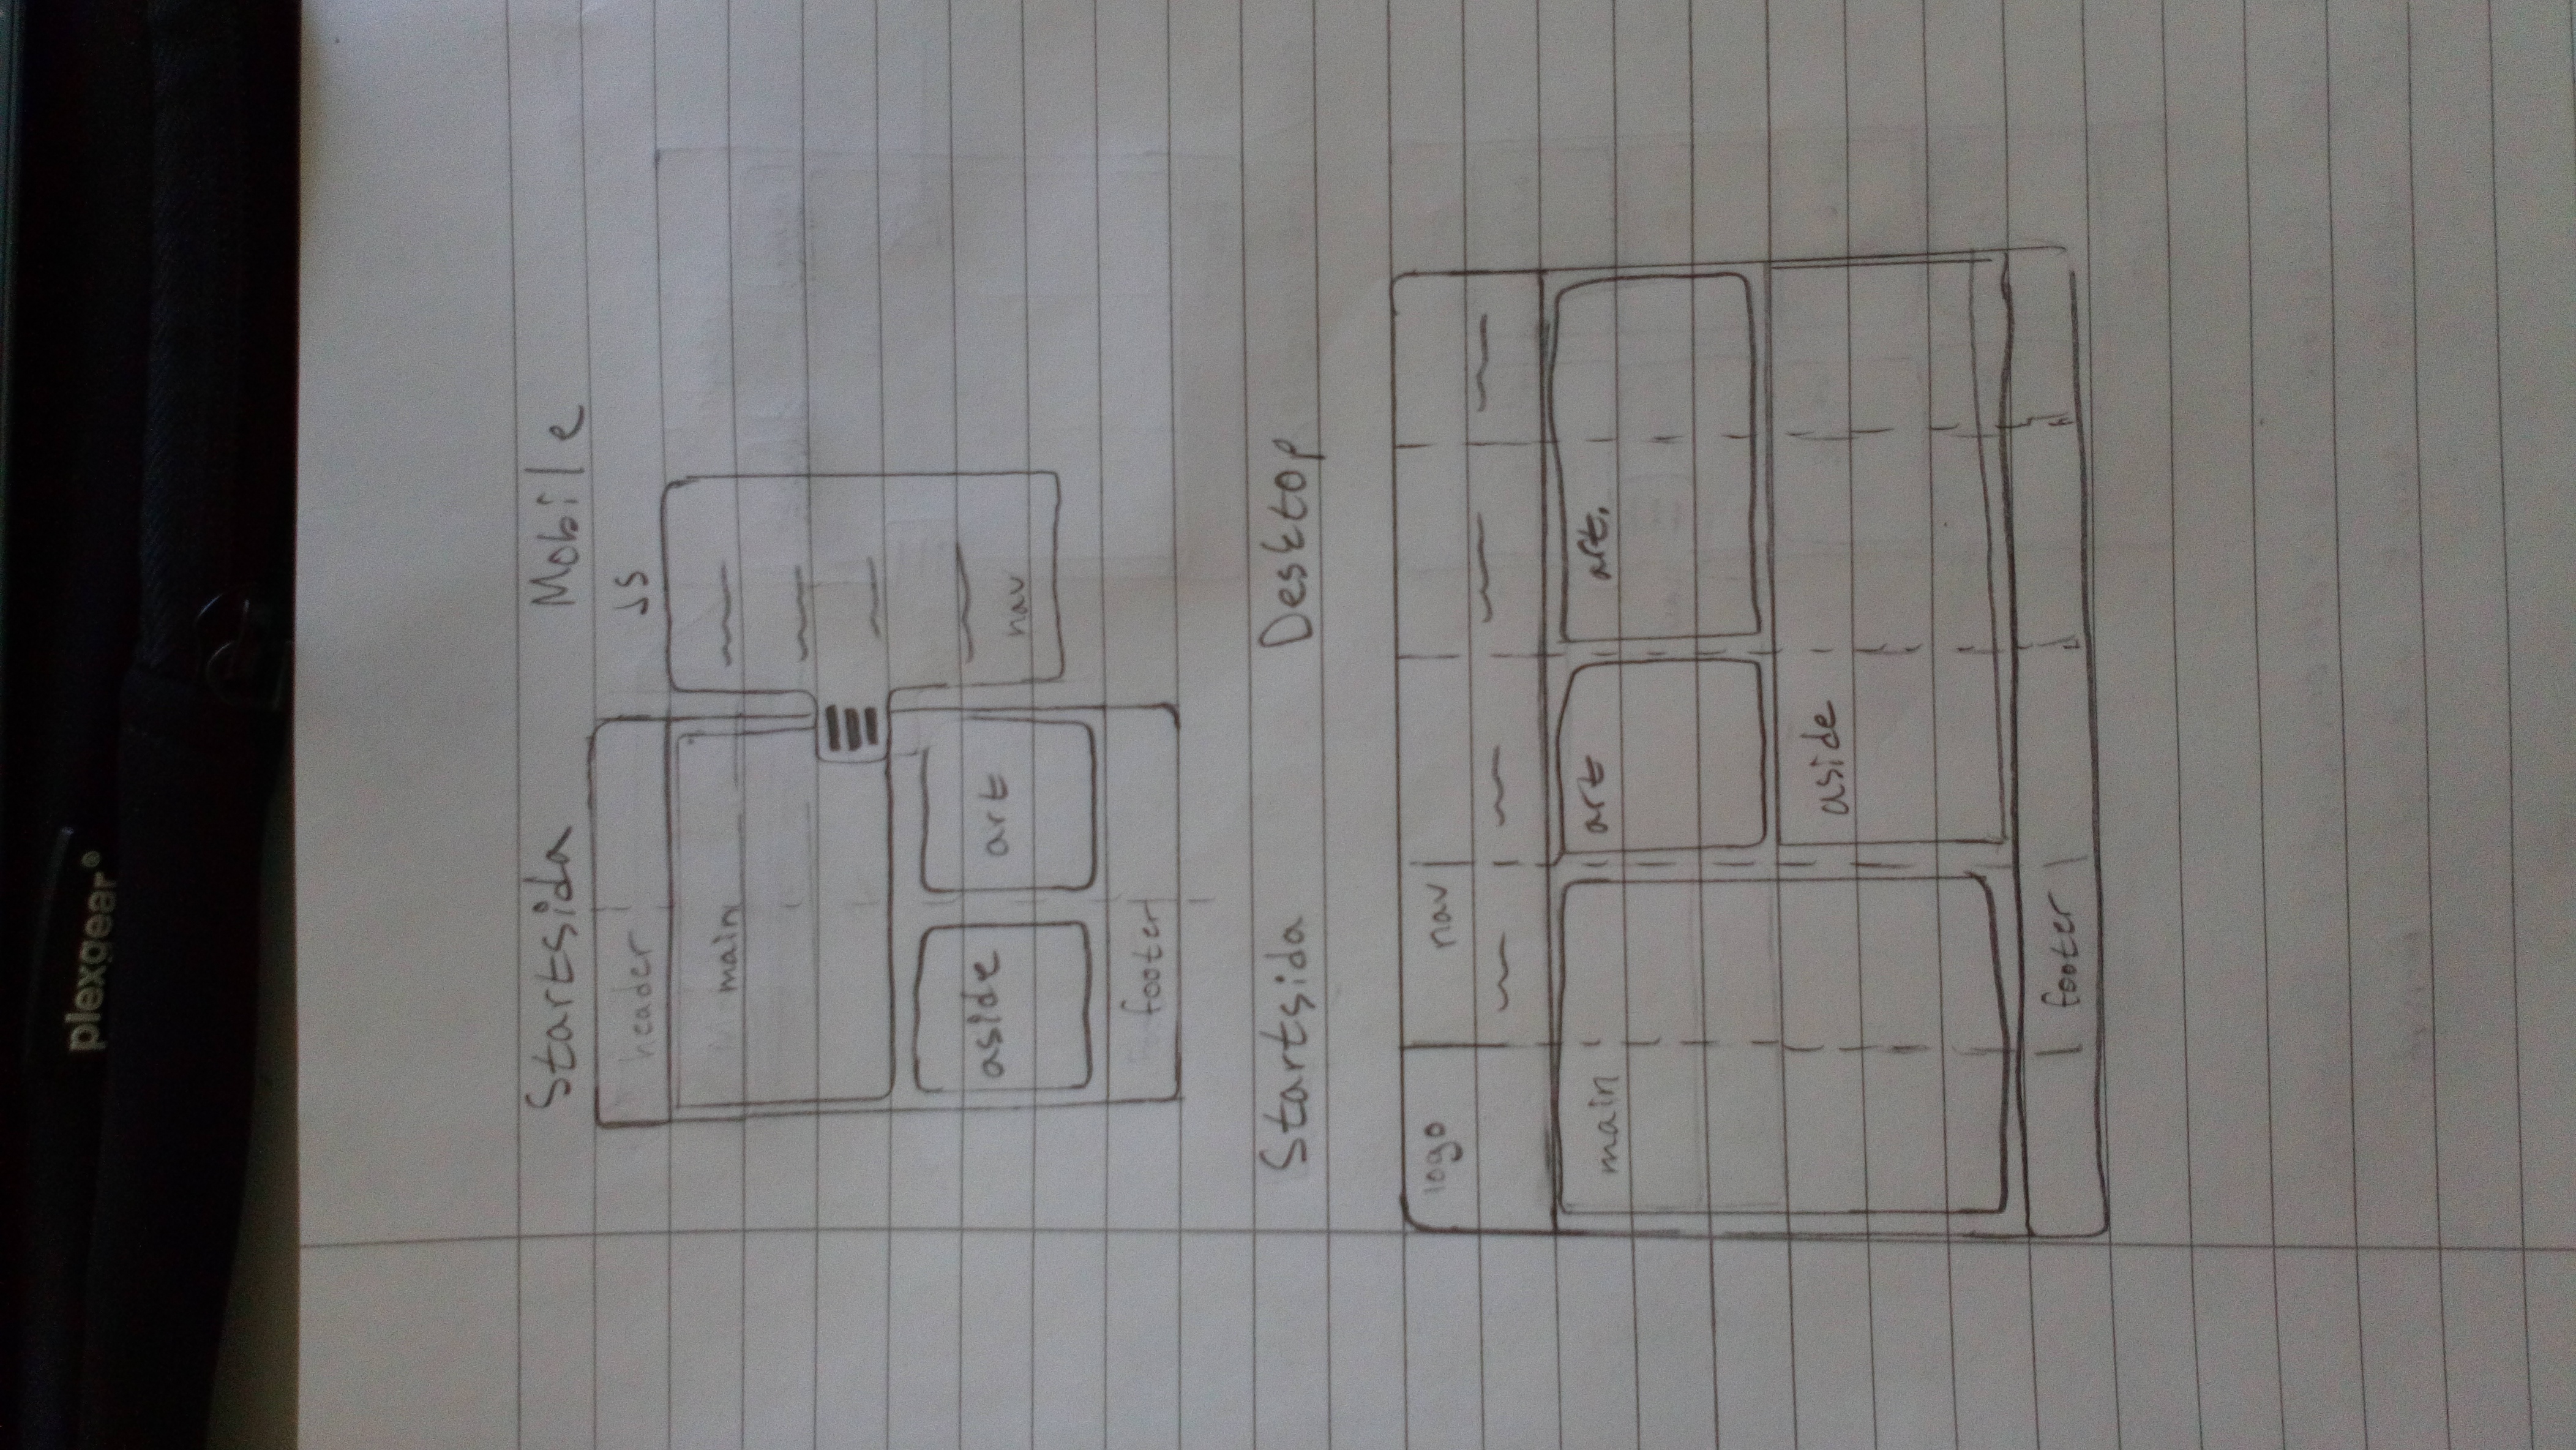 plexgear®
Startsida Mobile
header JS
main
aside art
nav
footer
Startsida Desktop
logo nav
main art art.
aside
footer